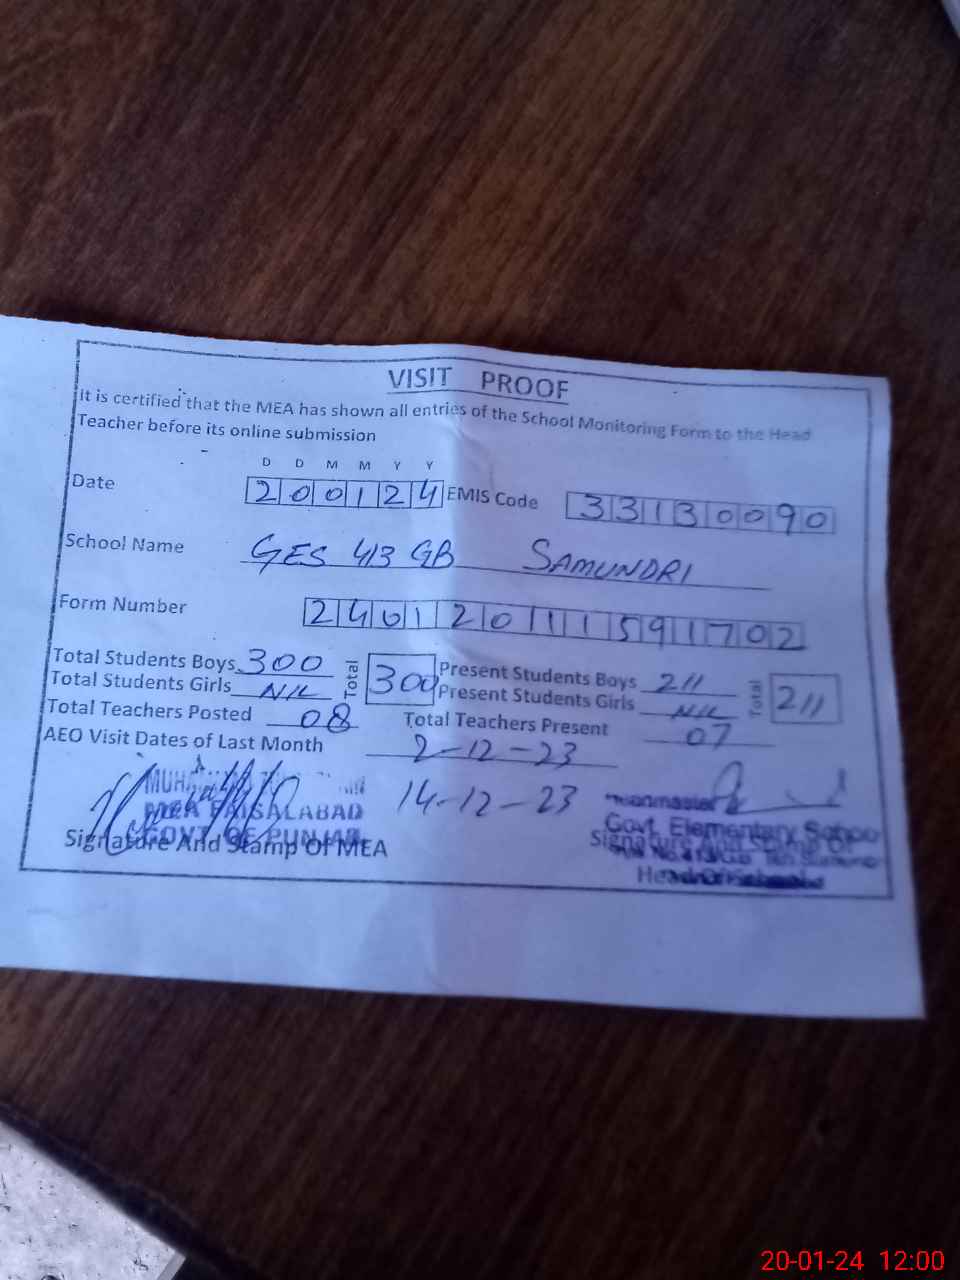 VISIT PROOF
It is certified that the MEA has shown all entries of the School Monitoring Form to the Head
Teacher before its online submission
D D M M Y Y
Date 200124 EMIS Code 33130090
School Name GES 413 GB SAMUNDRI
Form Number 240120111591702
Total Students Boys 300 Total 300 Present Students Boys 211 Total 211
Total Students Girls NIL Present Students Girls NIL
Total Teachers Posted 08 Total Teachers Present 07
AEO Visit Dates of Last Month 2-12-23
14-12-23
MEA FAISALABAD
GOVT. OF PUNJAB
Signature And Stamp Of MEA
Headmaster
Govt. Elementary School
Signature And Stamp Of
Head Of School
20-01-24 12:00